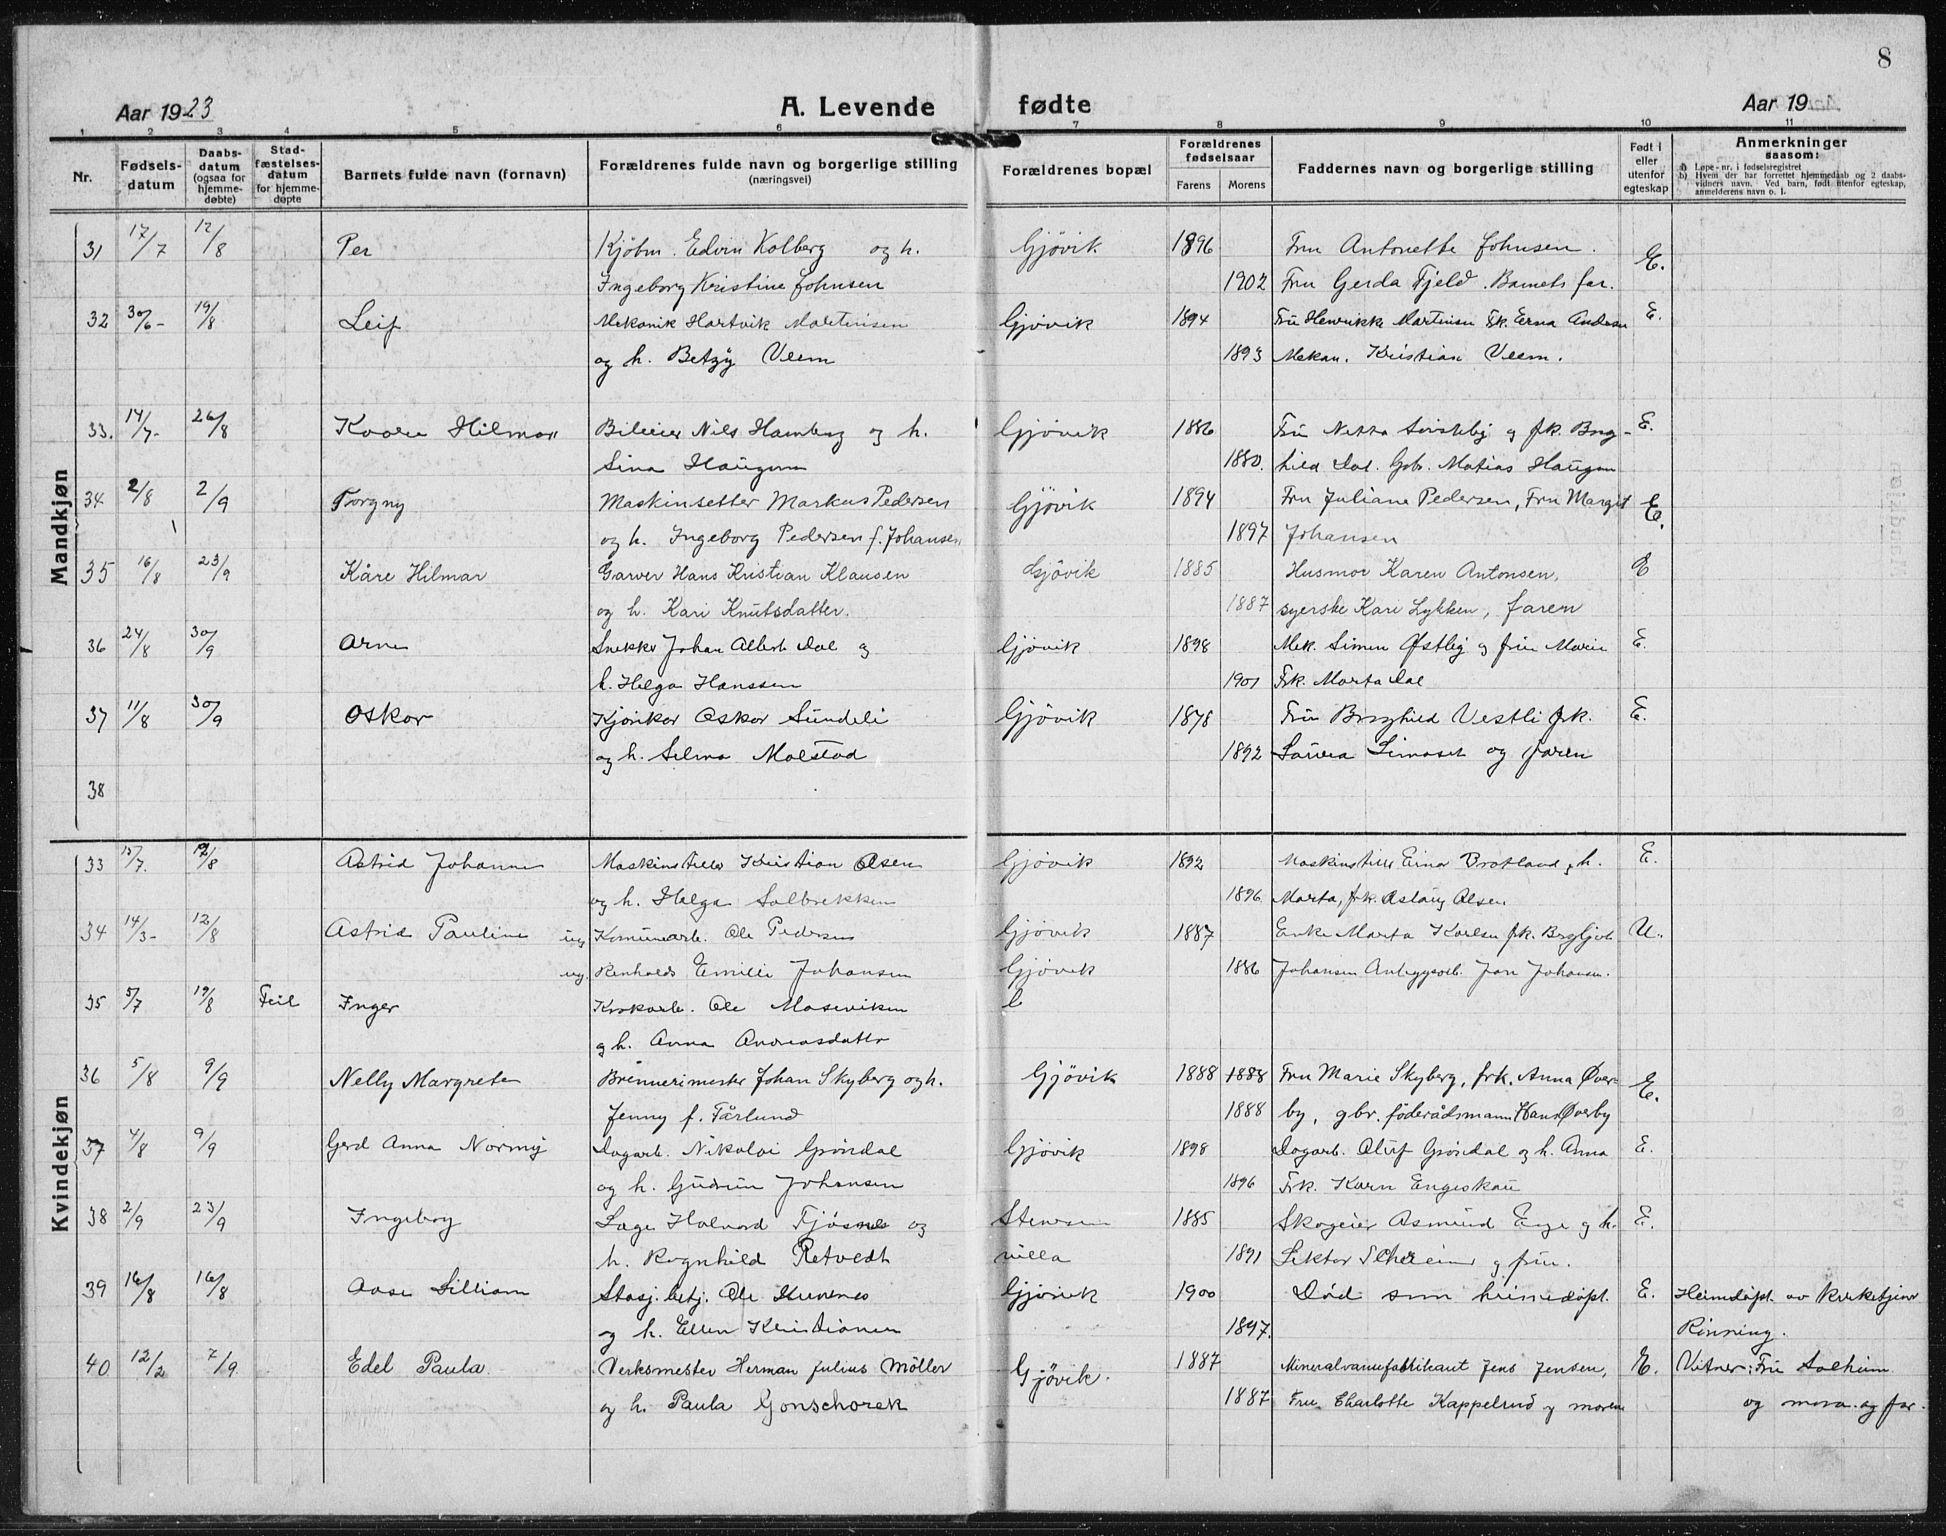 8
Aar 1923 A. Levende fødte Aar 19
1 2 3 4 5 6 7 8 9 10 11
Nr. Fødsels-datum Daabs-datum (ogsaa for hjemme-døbte) Stad-fæstelses-datum for hjemme-døpte Barnets fulde navn (fornavn) Forældrenes fulde navn og borgerlige stilling (næringsvei) Forældrenes bopæl Forældrenes fødselsaar Farens Morens Faddernes navn og borgerlige stilling Født i eller utenfor egteskap Anmerkninger saasom: a) Løpe-nr. i fødselsregistret b) Hvem der har forrettet hjemmedaab og 2 daabs-vidners navn. Ved barn, født utenfor egteskap, anmelderens navn o. l.
Mandkjøn
31 17/7 12/8 Per Kjøbm. Edvin Kolberg og h. Gjøvik 1896 Fru Antonette Johnsen. E.
Ingeborg Kristine Johnsen 1902 Fru Gerda Fjeld. Barnets far.
32 30/6- 19/8 Leif Mekanik Hartvik Martinsen Gjøvik 1894 Fru Henrikke Martinsen Frk. Erna Andersen E.
og h. Betzy Veem 1893 Mekan. Kristian Veem.
33. 14/7- 26/8 Kaare Hilmar Bileier Nils Hamberg og h. Gjøvik 1886 Fru Netta og frk. Borg- E.
Sina Haugom 1880. hild Dal. Gbr. Matias Haugom
34 2/8 2/9 Torgny Maskinsetter Markus Pedersen Gjøvik 1894 Fru Juliane Pedersen, Fru Margit E.
og h. Ingeborg Pedersen f. Johansen 1897 Johansen
35 16/8 23/9 Kåre Hilmar Garver Hans Kristian Klausen Gjøvik 1885 Husmor Karen Antonsen, E
og h. Kari Knutsdatter. 1887 syerske Kari Lykken, faren
36 24/8 30/9 Arne Snekker Johan Albert Dal og Gjøvik 1898 Mek. Simen Østby og frue Marie E.
h. Helga Hanssen 1901 Frk. Marta Dal
37 11/8 30/9 Oskar Kjørekar Oskar Sundeli Gjøvik 1878 Fru Borghild Vestli frk. E.
og h. Selma Molstad 1892 Laura og faren
38
Kvindekjøn
33 15/7. 12/8 Astrid Johanne Maskinstiller Kristian Olsen Gjøvik 1892 Maskinstiller Einar Brotland og h. E.
og h. Helga Solbrekken 1896. Marta, frk. Aslaug Olsen
34 14/3- 12/8 Astrid Pauline ug Komunearb. Ole Pedersen Gjøvik 1887 Enke Marta Karlsen frk. Bergljot U.
ug. Renholds Emilie Johansen Gjøvik 1886 Johansen Anleggsarb. Jon Johansen.
35 5/7 19/8 Feil Inger Ole Moseviken
og h. Anna Andreasdatter
36 5/8 9/9 Nelly Margrete Brennerimester Johan Skyberg og h. Gjøvik 1888 1888 Fru Marie Skyberg, frk. Anna Øver- E.
Jenny f. Tårlund 1888 by, gbr. føderådsmann Hans Øverby
37 4/8 9/9 Gerd Anna Normy Dagarb. Nikolai Grøndal Gjøvik 1898 Dagarb. Oluf Grøndal og h. Anna E.
og h. Gudrun Johansen 1896 Frk. Karn Engeskau
38 2/9 23/9 Ingeborg Læge Halvord Tjøsnes og Stensen 1885 Skogeier Asmund Enge og h. E.
h. Ragnhild Retvedt villa 1891 Lektor Scheen og frue.
39 16/8 16/8 Aase Lilliam Stasj.betj. Ole Gjøvik 1900 Død som heimedøpt. E. Heimdøpt av kirketjener
og h. Ellen Kristiansen 1897. Rønning.
40 12/2 7/9. Edel Paula. Verksmester Herman Julius Möller Gjøvik. 1887 Mineralvannfabrikant Jens Jensen, E. Vitner: Fru Solheim
og h. Paula Gonschorek 1887 Fru Charlotte Kappelrud og moren og mora og far.